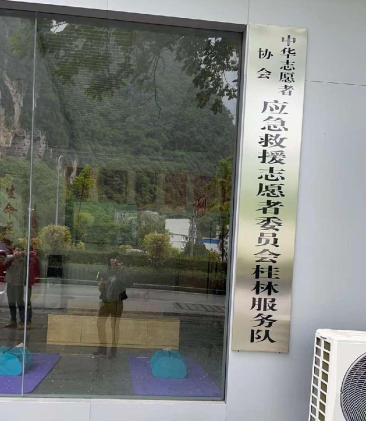 中华志愿者
协会
应急救援志愿者委员会桂林服务队
生命